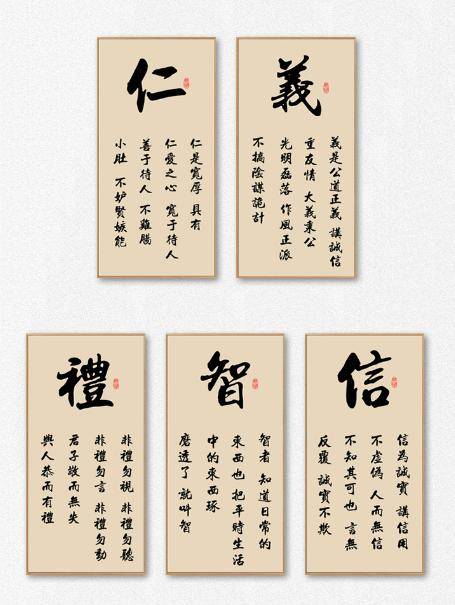 仁
仁是寬厚 具有
仁愛之心 寬于待人
善于待人 不雞腸
小肚 不妒賢嫉能
義
義是公道正義 講誠信
重友情 大義秉公
光明磊落 作風正派
不搞陰謀詭計
禮
非禮勿視 非禮勿聽
非禮勿言 非禮勿動
君子敬而無失
與人恭而有禮
智
智者 知道日常的
東西也 把平時生活
中的東西琢
磨透了 就叫智
信
信為誠實 講信用
不虛偽 人而無信
不知其可也 言無
反覆 誠實不欺